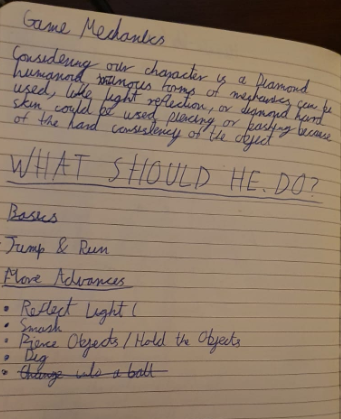 Game Mechanics
Considering our character is a Diamond
humanoid, various forms of mechanics can be
used, like light reflection, or diamond hard
skin could be used piercing, or bashing because
of the hard consistency of the object
WHAT SHOULD HE DO?
Basics
Jump & Run
More Advances
• Reflect Light (
• Smash
• Pierce Objects / Hold the Objects
• Dig
• Change into a ball